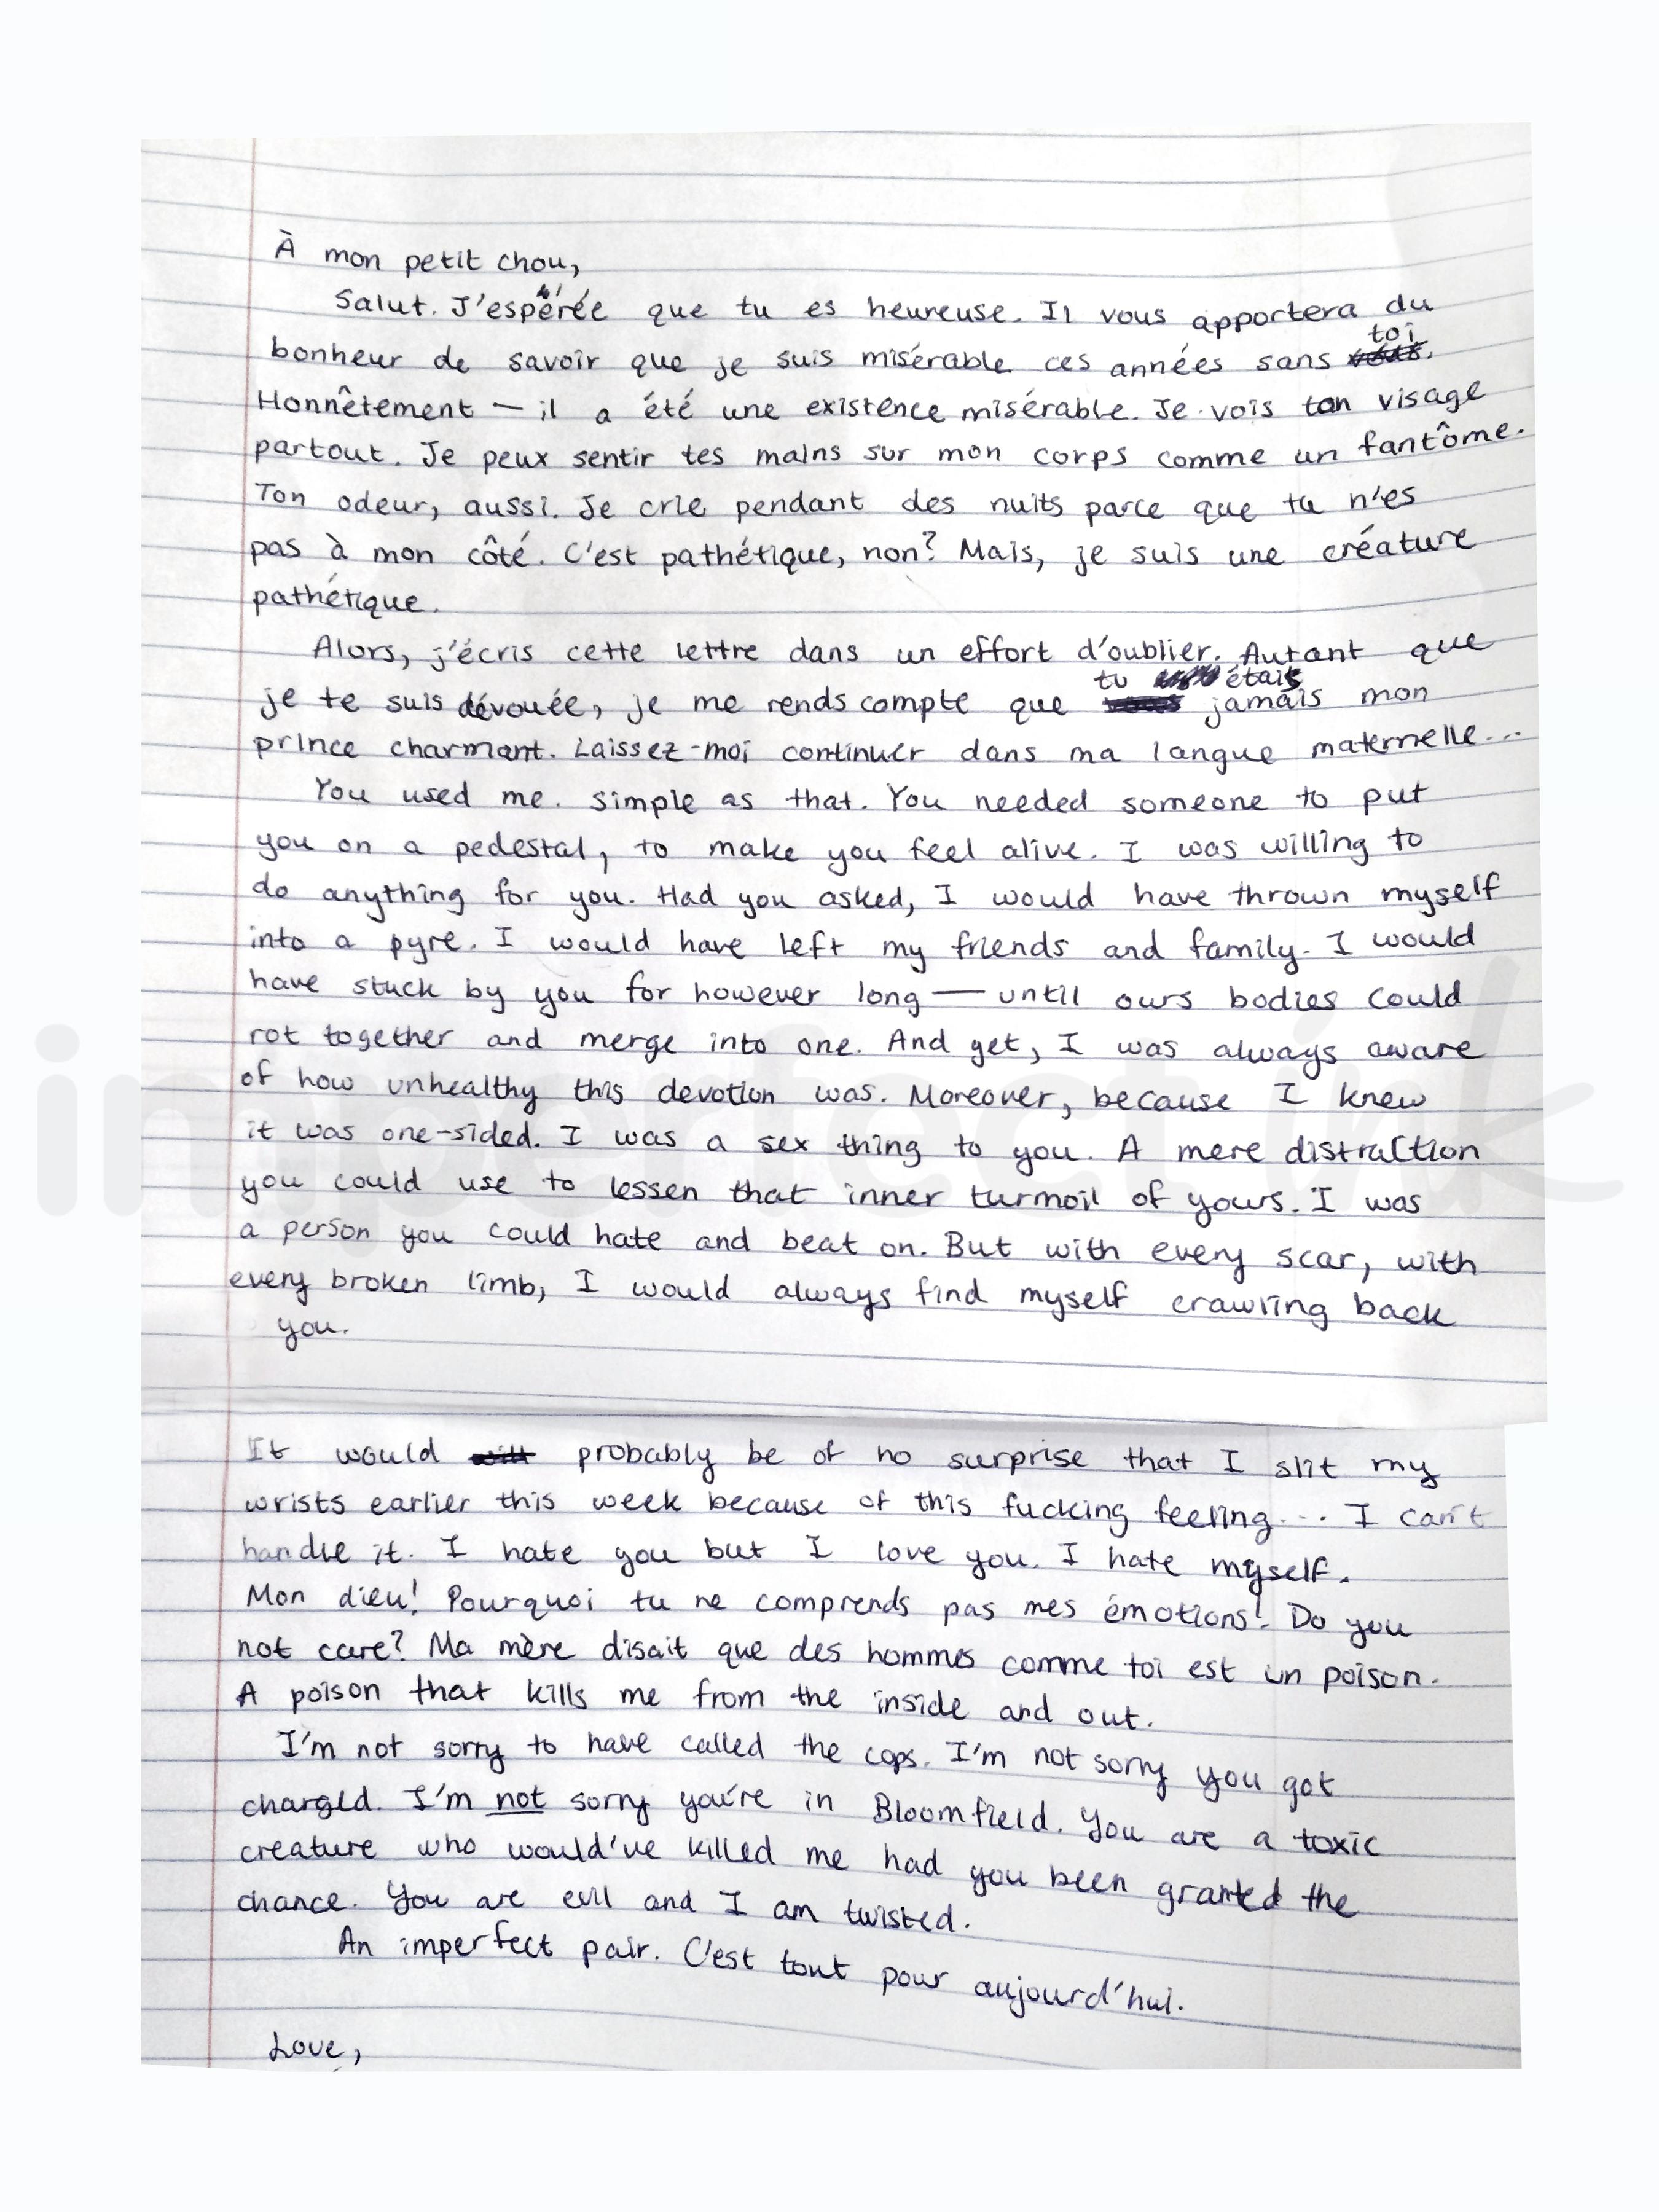 À mon petit chou,
Salut. J'espérée que tu es heureuse. Il vous apportera du
bonheur de savoir que je suis misérable ces années sans toi.
Honnêtement — il a été une existence misérable. Je vois ton visage
partout. Je peux sentir tes mains sur mon corps comme un fantôme.
Ton odeur, aussi. Je crie pendant des nuits parce que tu n'es
pas à mon côté. C'est pathétique, non? Mais, je suis une créature
pathétique.
Alors, j'écris cette lettre dans un effort d'oublier. Autant que
je te suis dévouée, je me rends compte que tu étais jamais mon
prince charmant. Laissez-moi continuer dans ma langue maternelle...
You used me. Simple as that. You needed someone to put
you on a pedestal, to make you feel alive. I was willing to
do anything for you. Had you asked, I would have thrown myself
into a pyre. I would have left my friends and family. I would
have stuck by you for however long — until ours bodies could
rot together and merge into one. And yet, I was always aware
of how unhealthy this devotion was. Moreover, because I knew
it was one-sided. I was a sex thing to you. A mere distraction
you could use to lessen that inner turmoil of yours. I was
a person you could hate and beat on. But with every scar, with
every broken limb, I would always find myself crawling back
you.
It would probably be of no surprise that I slit my
wrists earlier this week because of this fucking feeling... I can't
handle it. I hate you but I love you. I hate myself.
Mon dieu! Pourquoi tu ne comprends pas mes émotions! Do you
not care? Ma mère disait que des hommes comme toi est un poison.
A poison that kills me from the inside and out.
I'm not sorry to have called the cops. I'm not sorry you got
charged. I'm not sorry you're in Bloomfield. You are a toxic
creature who would've killed me had you been granted the
chance. You are evil and I am twisted.
An imperfect pair. C'est tout pour aujourd'hui.
Love,
imperfect ink